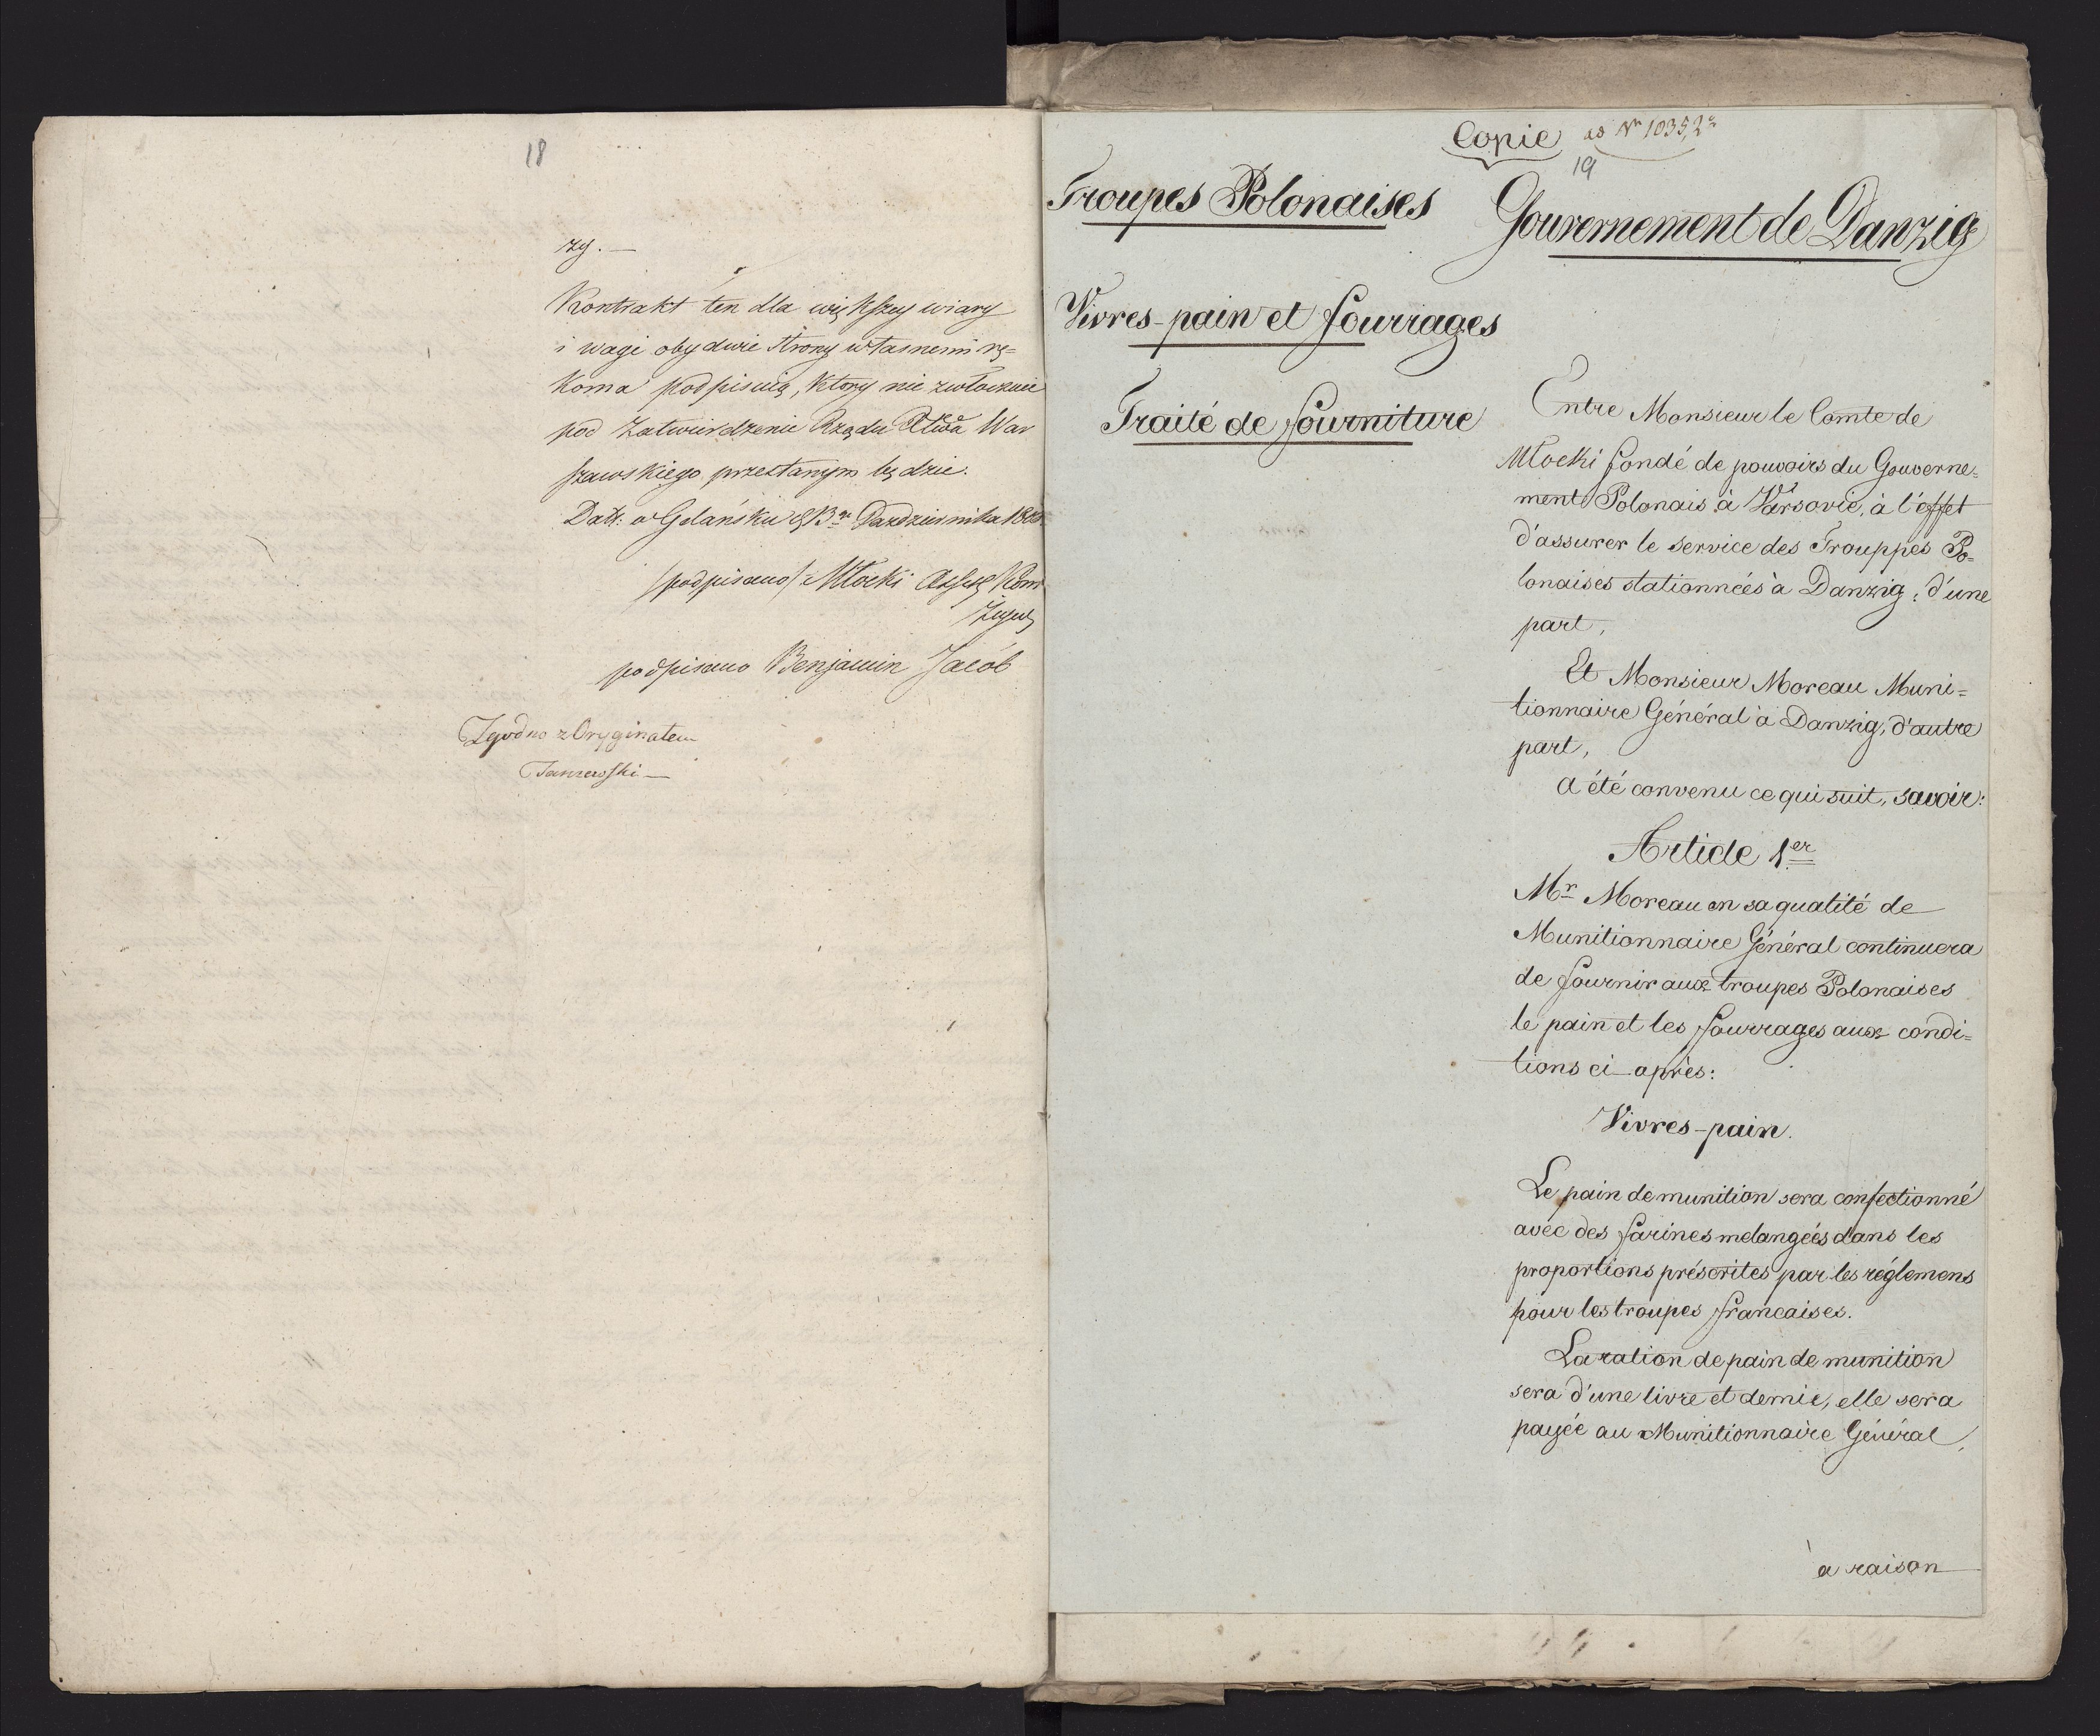 18
zy. —
Kontrakt ten dla większey wiary
i wagi obydwie strony własnemi rę=
koma podpisuią, który nie zwłocznie
pod zatwierdzenie Rządu Xtwa War
szawskiego przesłanym będzie.
Datt: w Gdańsku Pazdziernika
/podpisano/ Młocki
podpisano Benjamin Jacób
Zgodno z Oryginałem
Copie ad Nr 10352
19
Troupes Polonaises
Gouvernement de Danzig
Vivres-pain et fourrages
Traité de fourniture
Entre Monsieur le Comte de
Mlocki fondé de pouvoirs du Gouverne=
ment Polonais à Varsovie, à l'effet
d'assurer le service des Trouppes Po=
lonaises stationnées à Danzig, d'une
part,
Et Monsieur Moreau Muni=
tionnaire Général à Danzig, d'autre
part,
a été convenu ce qui suit, savoir:
Article 1er
Mr Moreau en sa qualité de
Munitionnaire Général continuera
de fournir aux troupes Polonaises
le pain et les fourrages aux condi=
tions ci-après:
Vivres-pain.
Le pain de munition sera confectionné
avec des farines melangées dans les
proportions préscrites par les réglemens
pour les troupes francaises.
La ration de pain de munition
sera d'une livre et demie, elle sera
payée au Munitionnaire Général,
à raison